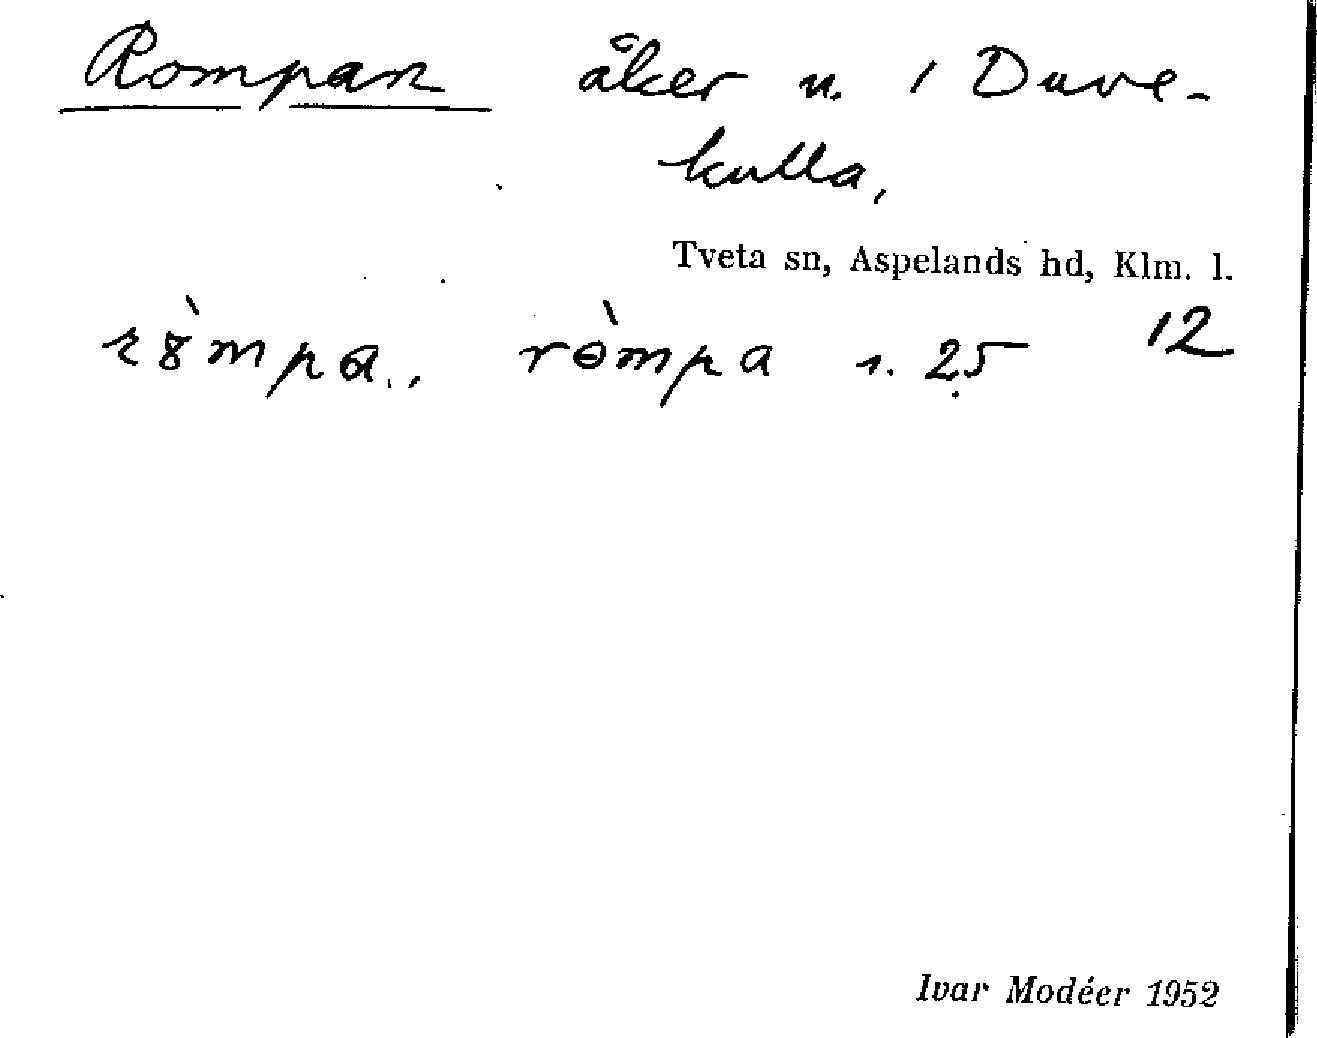 Rompan åker n. 1 Duve-
kulla,
Tveta sn, Aspelands hd, Klm. l.
ròmpa., ròmpa s. 25 12
Ivar Modéer 1952